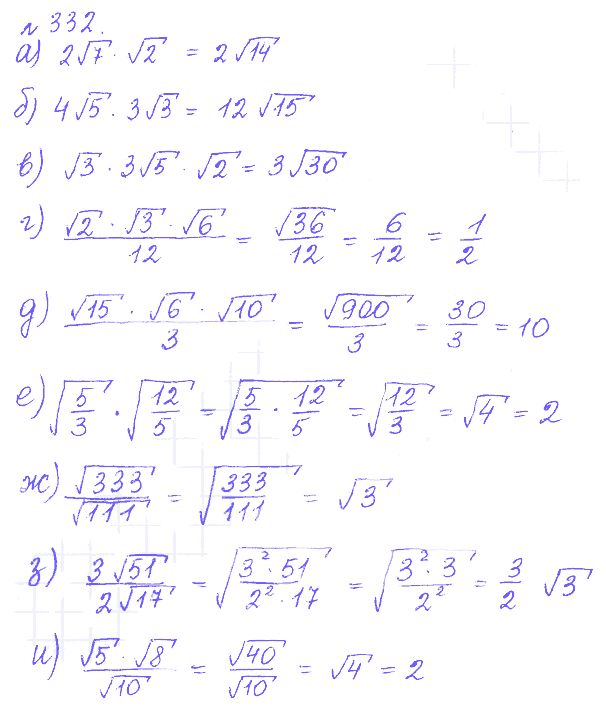 № 332.
а) 2√7 · √2 = 2√14
б) 4√5 · 3√3 = 12√15
в) √3 · 3√5 · √2 = 3√30
г) (√2 · √3 · √6)/12 = √36/12 = 6/12 = 1/2
д) (√15 · √6 · √10)/3 = √900/3 = 30/3 = 10
е) √(5/3) · √(12/5) = √(5/3 · 12/5) = √(12/3) = √4 = 2
ж) √333/√111 = √(333/111) = √3
з) 3√51/2√17 = √((3² · 51)/(2² · 17)) = √((3² · 3)/2²) = 3/2 √3
и) (√5 · √8)/√10 = √40/√10 = √4 = 2